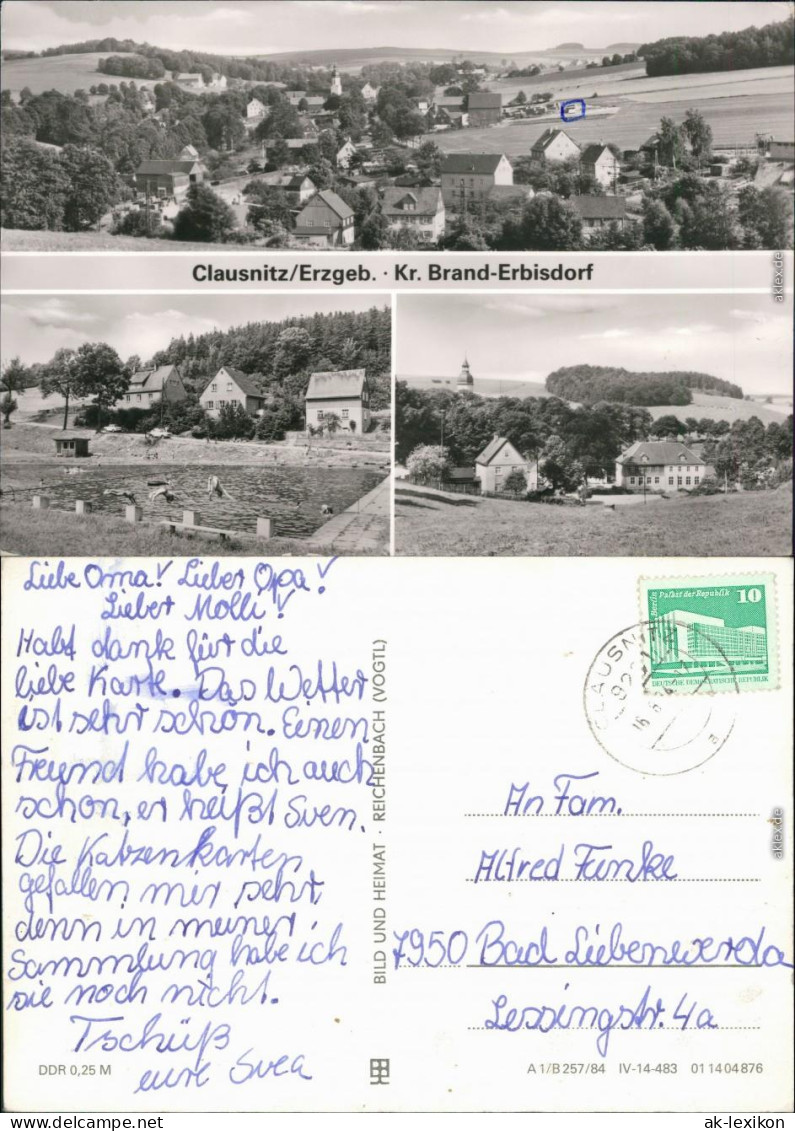 Clausnitz/Erzgeb. · Kr. Brand-Erbisdorf
aklex.de
Liebe Oma! Lieber Opa!
Lieber Molli!
Habt dank für die
liebe Karte. Das Wetter
ist sehr schön. Einen
Freund habe ich auch
schon, er heißt Sven.
Die Katzenkarten
gefallen mir sehr
denn in meiner
Sammlung habe ich
sie noch nicht.
Tschüß
eure Svea
DDR 0,25 M
BILD UND HEIMAT · REICHENBACH (VOGTL)
Berlin Palast der Republik 10
DEUTSCHE DEMOKRATISCHE REPUBLIK
CLAUSNITZ
An Fam.
Alfred Funke
7950 Bad Liebenwerda
Lessingstr. 4a
A 1/B 257/84 IV-14-483 01 14 04 876
aklex.de
http://www.ak-lexikon.de
ak-lexikon